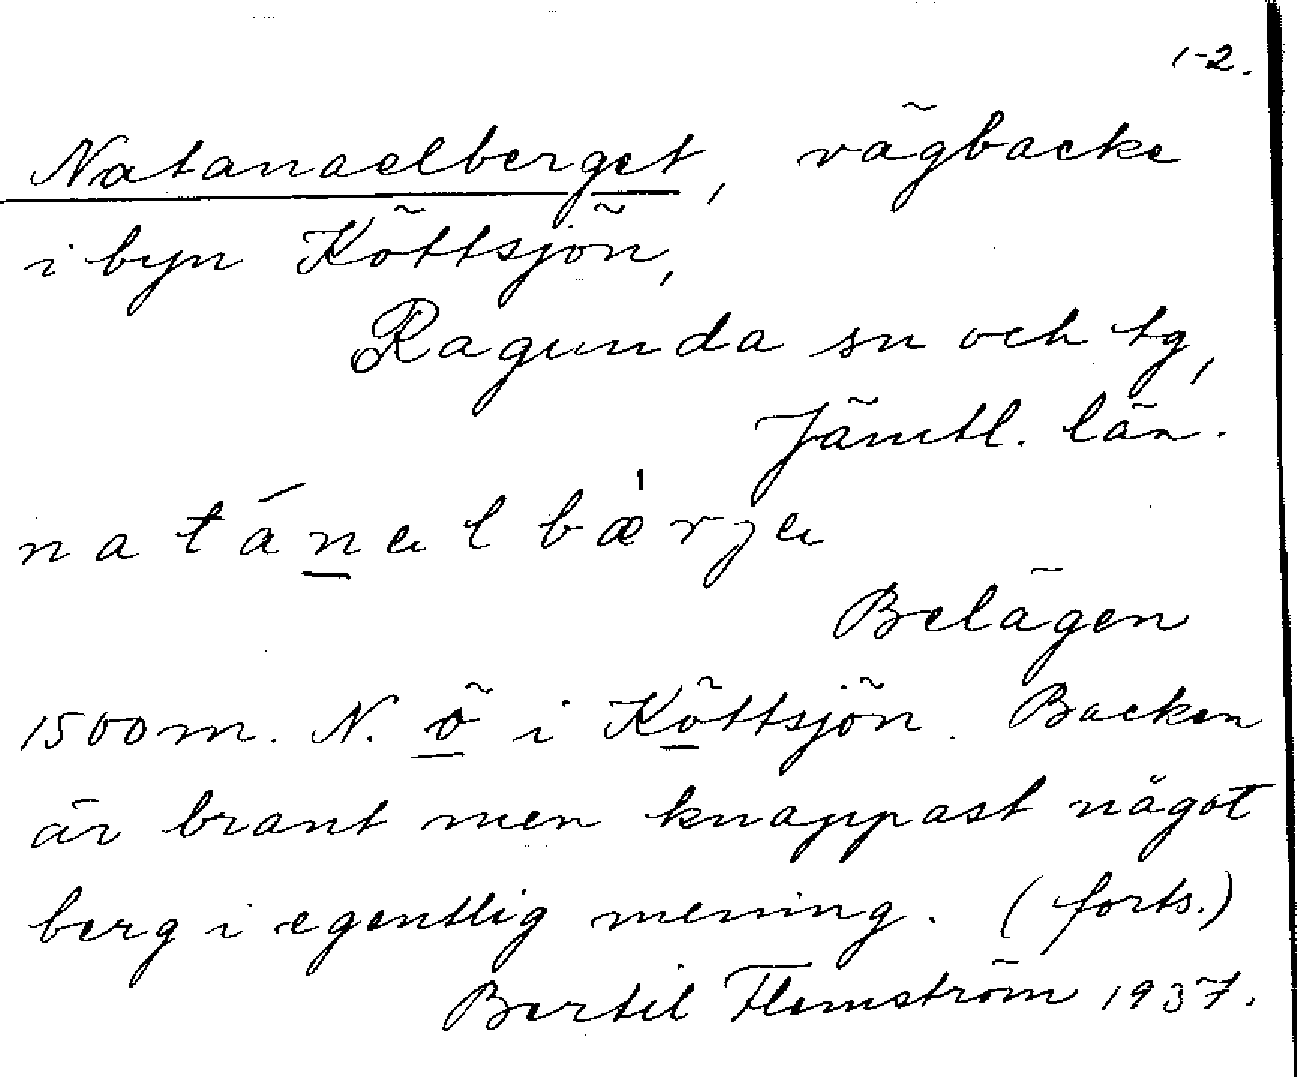 1-2.
Natanaelberget, vägbacke
i byn Köttsjön,
Ragunda sn och tg,
Jämtl. län.
natánəlbæ̀rjə
Belägen
1500 m. N. ö i Köttsjön. Backen
är brant men knappast något
berg i egentlig mening. (forts.)
Bertil Flemström 1937.